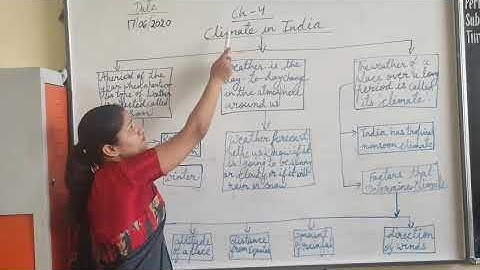 Date
17/06/2020
Ch-4
Climate in India
A period of the
year
is called
season
Weather is the
day-to-day change
in the atmosphere
around us
weather of a
place over a long
period is called
its climate
Weather forecast
helps us know if it
is going to be sunny
or cloudy or if it will
rain or snow
India has tropical
monsoon climate
winter
Factors that
determine climate
altitude
of a place
distance
from equator
amount
of rainfall
direction
of winds
Per
Sub
Time